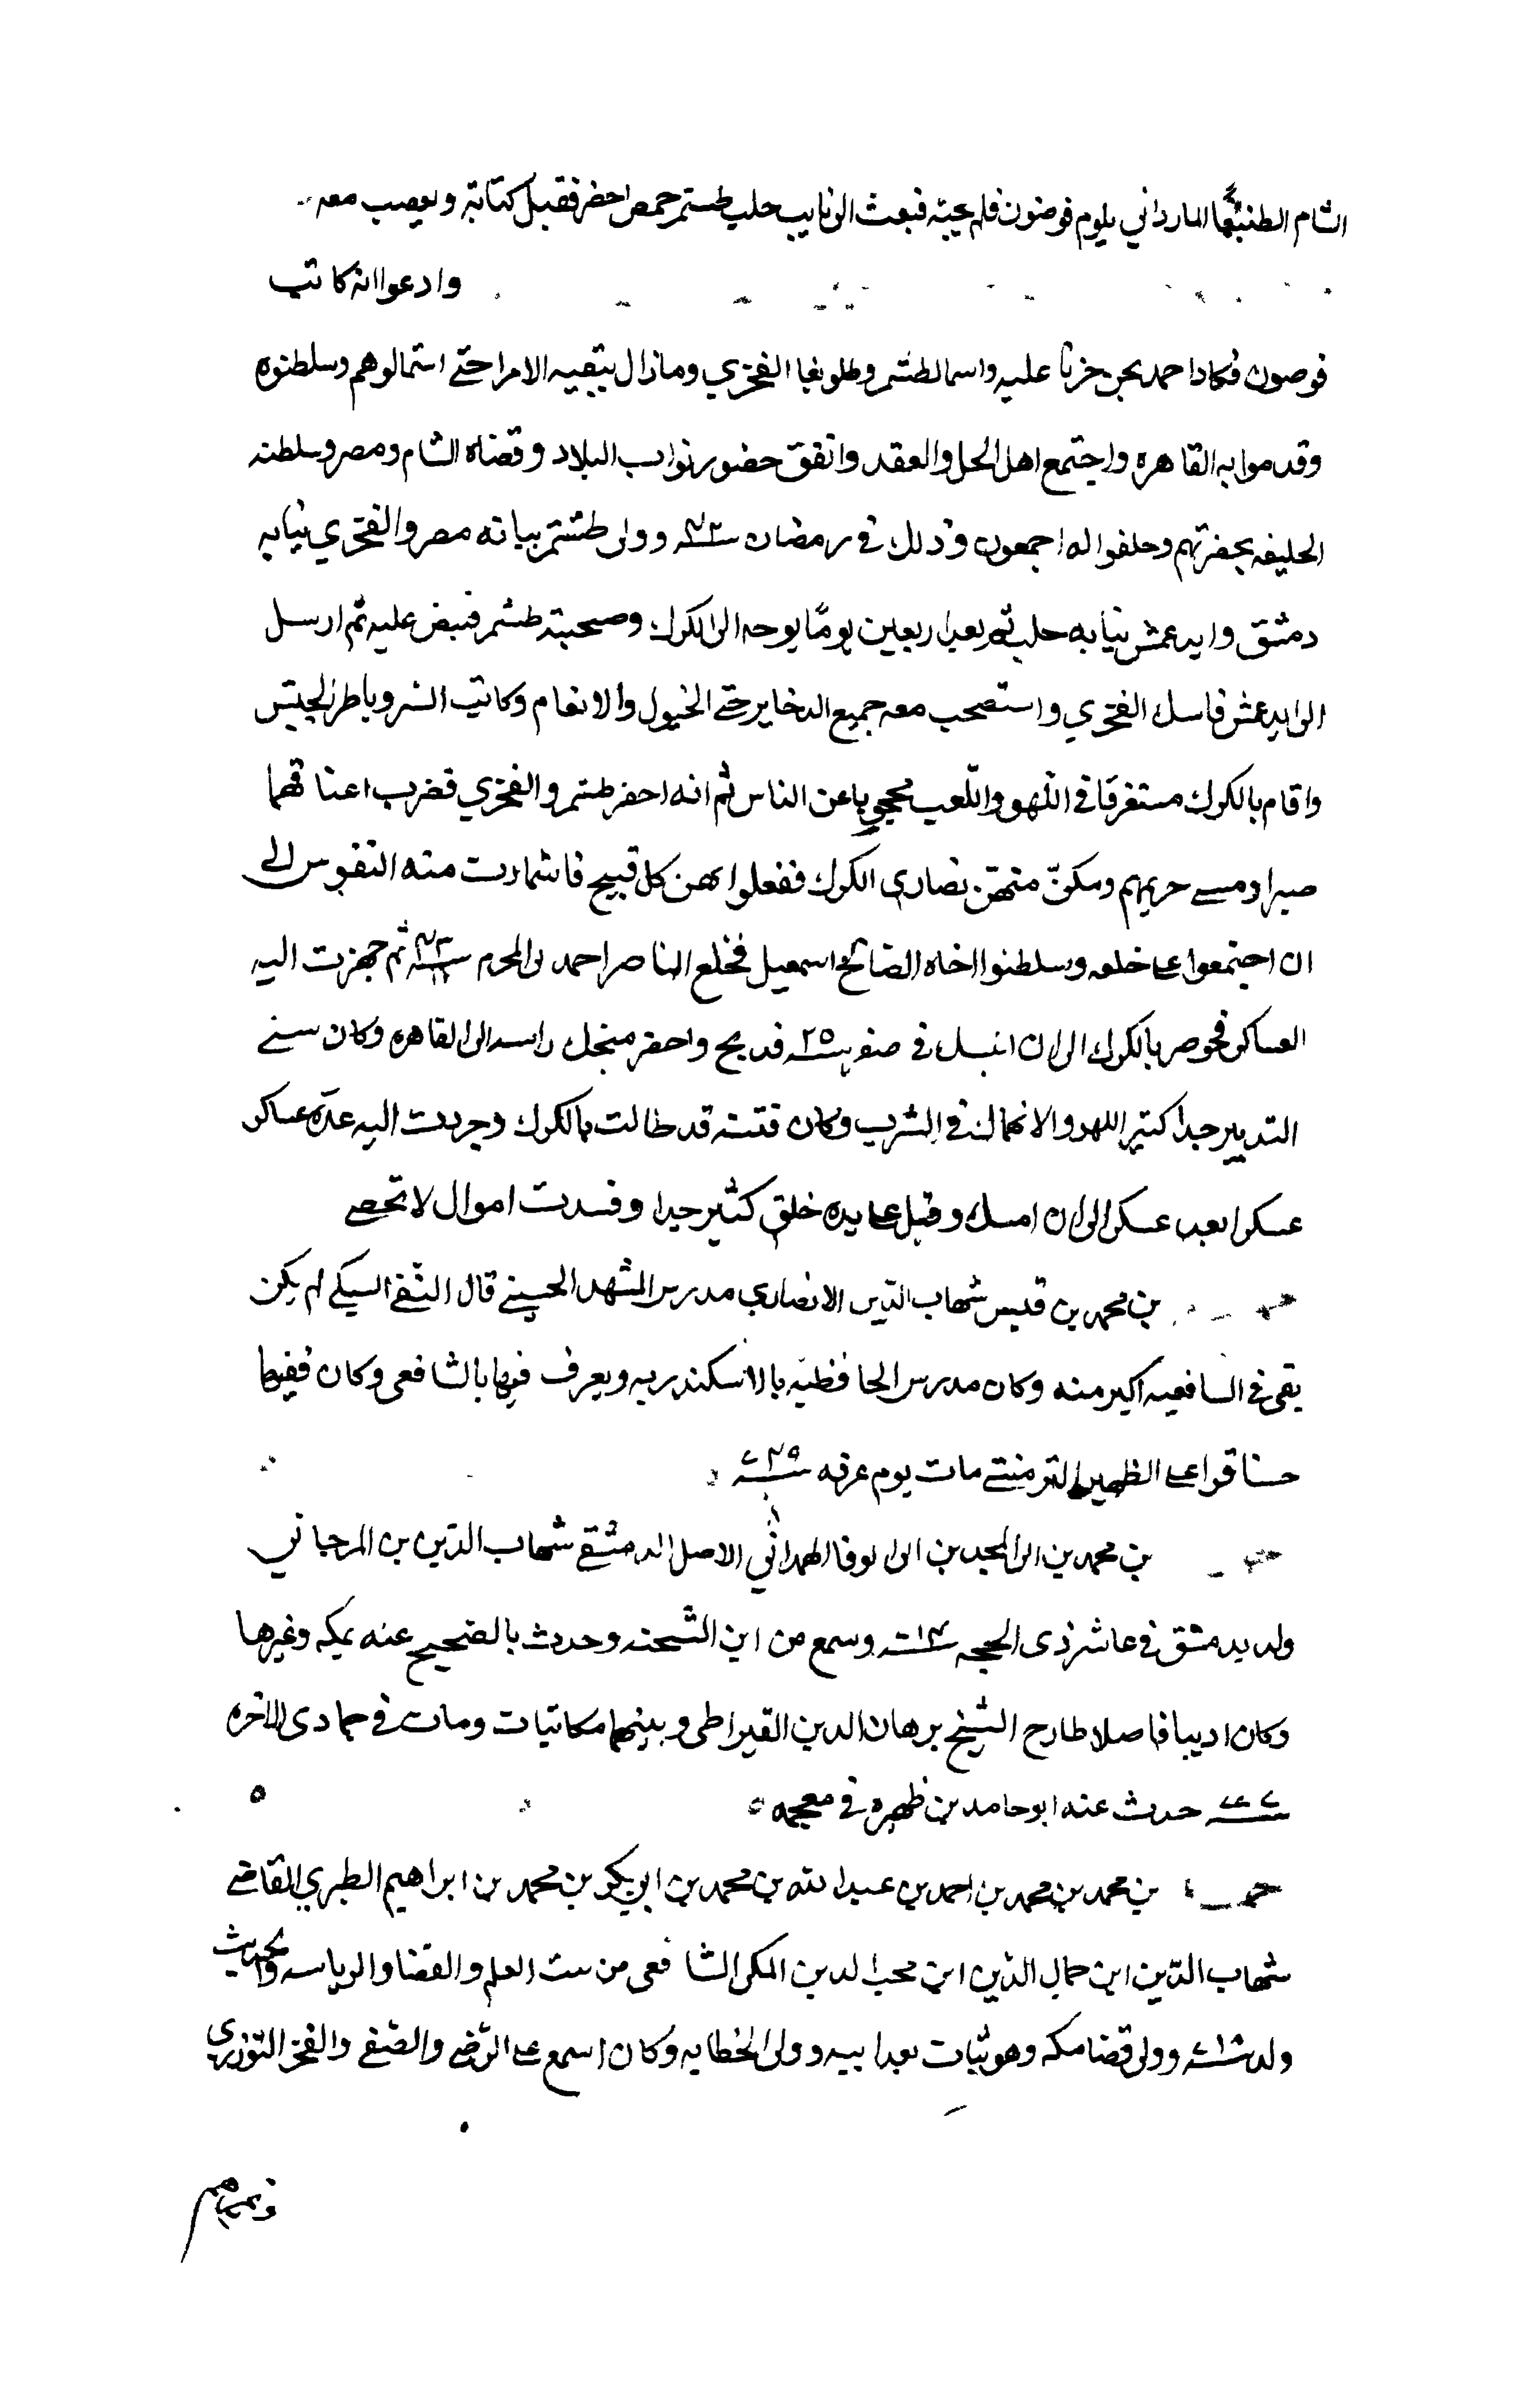 الشام الطنبغا المارداني يلوم قوصون فلم يجبه فبعث الى نايب حلب طستمر حمص احضر فقبل كتابه وتعصب معه
وادعوا انه كاتب
قوصون فكاد احمد يجن حزنا عليه واسما لطشتمر وطلوبغا الفخري ومازال ببقيه الامرا حتى استمالوهم وسلطنوه
وقدموا به القاهره واجتمع اهل الحل والعقد واتفق حضور نواب البلاد وقضاه الشام ومصر وسلطنه
الحليفه بحضرتهم وحلفوا له اجمعون وذلك في رمضان سنة ٤٢ وولى طشتمر نيابه مصر والفخري نيابه
دمشق وايدغمش نيابه حلب ثم بعد اربعين يوما توجه الى الكرك وصحبته طشتمر فقبض عليه ثم ارسل
الى ايدغمش فامسك الفخري واستصحب معه جميع الدخاير حتى الخيول والانعام وكاتب السر وناظر الجيش
واقام بالكرك مستغرقا في اللهو واللعب محجوبا عن الناس ثم انه احضر طشتمر والفخري فضرب اعناقهما
صبرا وسبى حريمهم ومكن منهن نصارى الكرك ففعلوا بهن كل قبيح فاشمازت منه النفوس الى
ان اجتمعوا على خلعه وسلطنوا اخاه الصالح اسمعيل فخلع الناصر احمد في المحرم سنة ٤٣ ثم جهزت اليه
العساكر فحوصر بالكرك الى ان امسك في صفر سنة ٤٥ فدبح واحضر منجك راسه الى القاهره وكان سيئ
التدبير جدا كثير اللهو والانهماك في الشرب وكان فتنته قد طالت بالكرك وجردت اليه عدة عساكر
عسكرا بعد عسكر الى ان امسك وقتل على يده خلق كثير جدا وفسدت اموال لا تحصى
بن محمد بن قيس شهاب الدين الانصاري مدرس المشهد الحسيني قال التقي السبكي لم يكن
بقى في الشافعيه اكبر منه وكان مدرس الحافظيه بالاسكندريه ويعرف فيها بالشافعي وكان فقيها
حسنا قرا على الظهير التزمنتي مات يوم عرفه سنة ٧٤٩
بن محمد بن ابي المجد بن ابي الوفا الهمداني الاصل الدمشقي شهاب الدين بن المرجاني
ولد بدمشق في عاشر ذى الحجه سنة ٧١٤ وسمع من ابن الشحنه وحدث بالصحيح عنه بمكه وغيرها
وكان اديبا فاصلا طارح الشيخ برهان الدين القيراطي وبينهما مكاتبات ومات في جمادى الاخره
حدث عنه ابو حامد بن ظهيره في معجمه
احمد بن محمد بن محمد بن احمد بن عبد الله بن محمد بن ابي بكر بن محمد بن ابراهيم الطبري القاضي
شهاب الدين ابن جمال الدين ابن محب الدين المكي الشافعي من بيت العلم والقضا والرياسه والحديث
ولد سنة ٧١٨ وولى قضا مكه وهو شاب بعد ابيه وولى الخطابه وكان اسمع على الرضي والصفي والفخر التوزري